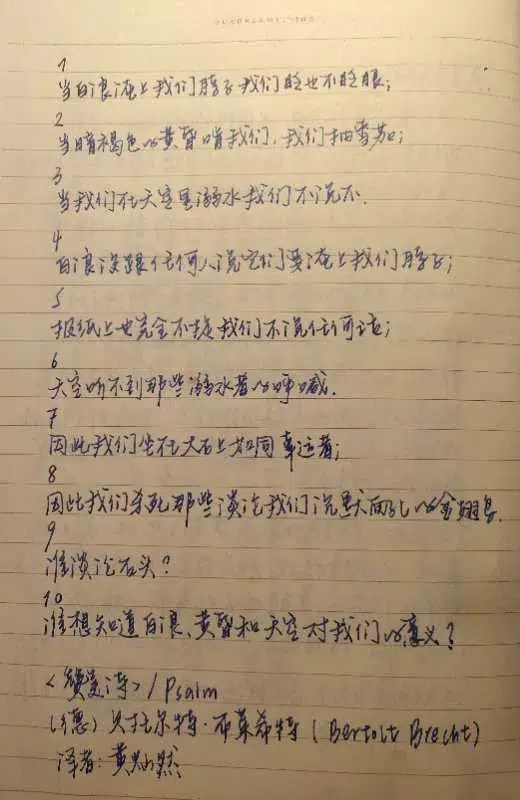 1
当白浪淹上我们脖子我们眨也不眨眼；
2
当暗褐色的黄昏啃我们，我们抽雪茄；
3
当我们在天空里溺水我们不说不.
4
白浪没跟任何人说它们要淹上我们脖子；
5
报纸上也完全不提我们不说任何话；
6
天空听不到那些溺水者的呼喊.
7
因此我们坐在大石上如同幸运者；
8
因此我们杀死那些谈论我们沉默面孔的金翅雀.
9
谁谈论石头？
10
谁想知道白浪、黄昏和天空对我们的意义？
<赞美诗> / Psalm
(德) 贝托尔特·布莱希特 ( Bertolt Brecht)
译者: 黄灿然